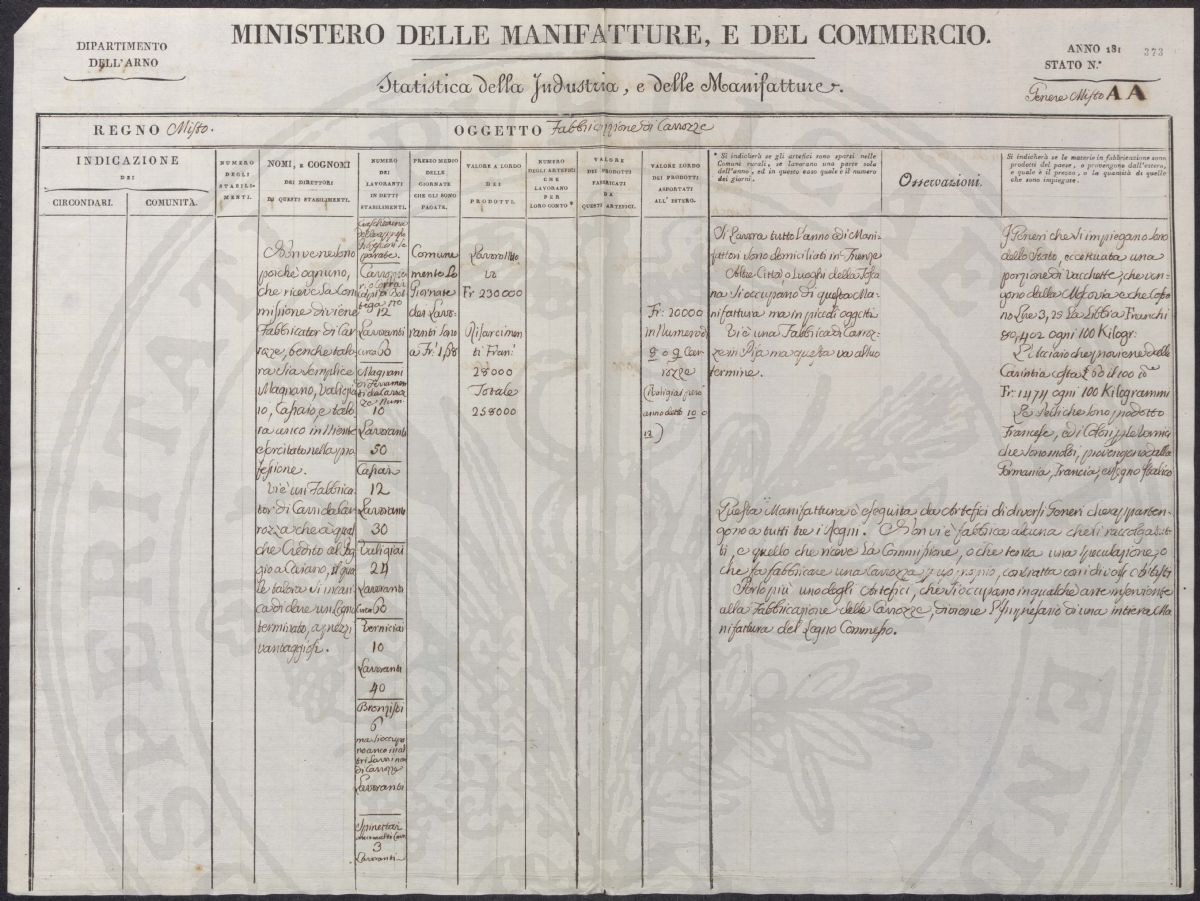 MINISTERO DELLE MANIFATTURE, E DEL COMMERCIO.
DIPARTIMENTO
DELL'ARNO
ANNO 181
373
STATO N.°
Statistica della Industria, e delle Manifatture.
Genere Misto AA
REGNO Misto.
OGGETTO Fabbricazione di Carrozze
INDICAZIONE
DEI
CIRCONDARI.
COMUNITÀ.
NUMERO
DEGLI
STABILI-
MENTI.
NOMI, E COGNOMI
DEI DIRETTORI
DI QUESTI STABILIMENTI.
NUMERO
DEI
LAVORANTI
IN DETTI
STABILIMENTI.
PREZZO MEDIO
DELLE
GIORNATE
CHE GLI SONO
PAGATE.
VALORE A LORDO
DEI
PRODOTTI.
NUMERO
DEGLI ARTEFICI
CHE
LAVORANO
PER
LORO CONTO *
VALORE
DEI PRODOTTI
FABBRICATI
DA
QUESTI ARTEFICI.
VALORE LORDO
DEI PRODOTTI
ASPORTATI
ALL'ESTERO.
* Si indicherà se gli artefici sono sparsi nelle
Comuni rurali, se lavorano una parte sola
dell'anno, ed in questo caso quale è il numero
dei giorni.
Osservazioni.
Si indicherà se le materie in fabbricazione sono
prodotti del paese, o provengono dall'estero,
e quale è il prezzo, o la quantità di quelle
che sono impiegate.
Non ve ne sono
perchè ogni uno,
che riceve la Com
missione diviene
Fabbricator di Car
rozze, benche talo
ra sia semplice
Magnano, Valigia
io, Casaio e talo
ra unico
esercitato nella pro
fessione.
Vi è un Fabbrica
tor di Carri da Car
rozza che à qual
che Credito al Pog
gio a Caiano, il qua
le talora si incari
ca di dare un Legno
terminato, a prezzi
vantaggiosi.
12
Lavoranti
circa 60
Magnani
di Ferramen
ti da Carroz
ze Num.
10
Lavoranti
50
Casai
12
Lavoranti
30
Valigiai
24
Lavoranti
circa 60
Verniciai
10
Lavoranti
40
Bronzisti
6
ma si occupa
no anco in al
tri Lavori non
di Carrozze
Lavoranti
3
Lavoranti
Comune
mente Le
Giornate
dei Lavo
ranti sono
a Fr.
Lavoro Nuo
vo
Fr 230000
Risarcimen
ti Fran.
28000
Totale
258000
Fr. 20000
in Numero di
8 o 9 Car
rozze
Si Lavora tutto l'anno ed i Mani
fattori sono domiciliati in Firenze
Altre Città o Luoghi della Tosca
na si occupano di questa Ma
nifattura ma in piccoli oggetti
Vi è una Fabbrica di Carroz
ze in Pisa ma questa va al suo
termine.
I Generi che si impiegano sono
dello Stato, eccettuata una
porzione di Vacchette, che ven
gono dalla Moscovia e che costa
no Lire 3, 25 La Libbra Franchi
80,402 ogni 100 Kilogr:
L'Acciaio che proviene dalla
Carintia costa £ 60 il 100
Fr: 147 ogni 100 Kilogrammi
Le Pelli che sono prodotto
Francese, ed i Colori, e le Vernici
che sono molti, provengono dalla
Germania, Francia, e Regno Italico
Questa Manifattura è eseguita da Artefici di diversi Generi che apparten
gono a tutti tre i Regni. Non vi è fabbrica alcuna che li raccolga tut
ti, e quello che riceve La Commissione, o che tenta una speculazione, o
che fa fabbricare una Carrozza p. uso proprio, contratta con i diversi Artisti
Per lo più uno degli Artefici, che si occupano in qualche arte inserviente
alla Fabbricazione delle Carrozze, diviene l'Impresario di una intiera Ma
nifattura del Legno Commesso.